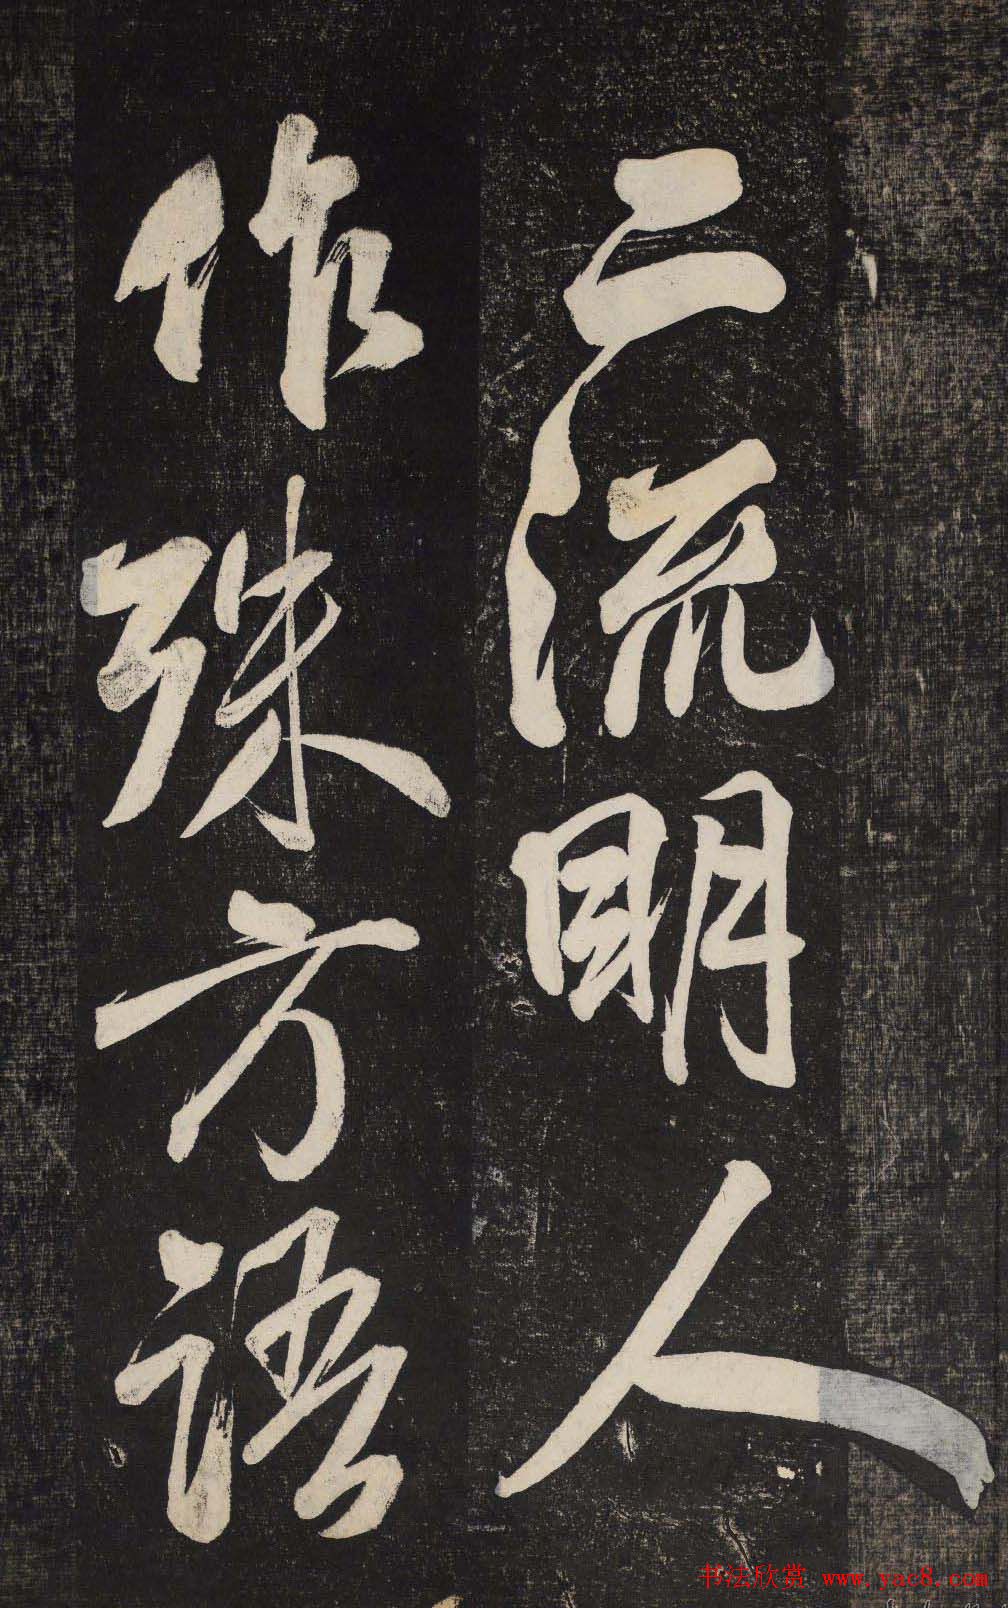 二流明人
作殊方语
书法欣赏 www.yac8.com